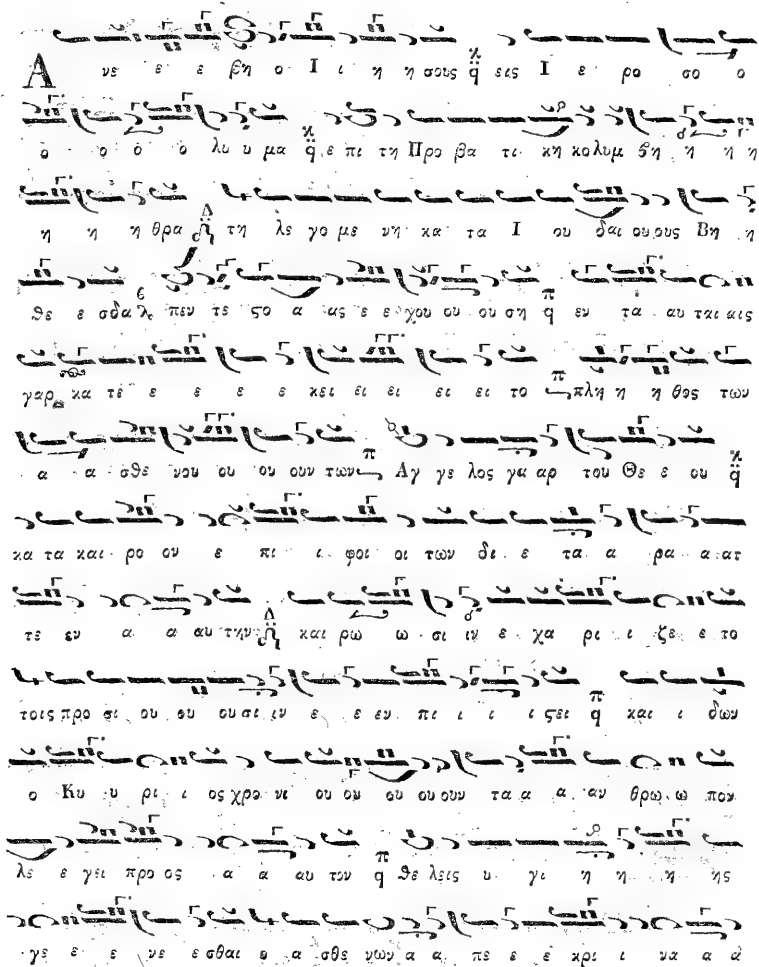 Α νε ε ε βη ο Ι ι η η σους κ q εις Ι ε ρο σο ο
ο ο ο ο λυ υ μα κ q ε πι τη Προ βα τι κη κολυμ βη η η η
η η η θρα Δ τη λε γο με νη κα τα Ι ου δαι ους ους Βη η
θε ε σδα λ πεν τε ςο α ας ε ε χου ου ου ση π q εν τα αυ ται αις
γαρ κα τε ε ε ε ε ε κει ει ει ει ει το π πλη η η θος των
α α σθε νου ου ου ουν των π Αγ γε λος γα αρ του Θε ε ου κ q
κα τα και ρο ον ε πι ι φοι οι των δι ε τα α ρα α ατ
τε εν α α αυ την Δ και ρω ω σι ιν ε χα ρι ι ζε ε το
τοις προ σι ου ου ου σι ιν ε ε εν πι ι ι ι ςει π q και ι δων
ο Κυ υ ρι ι ος χρο νι ου ου ου ου ουν τα α α αν θρω ω πον
λε ε γει προ ος α α αυ τον π q Θε λεις υ γι η η η ης
γε ε ε νε ε σθαι ο α σθε νων α α πε ε ε κρι ι να α α